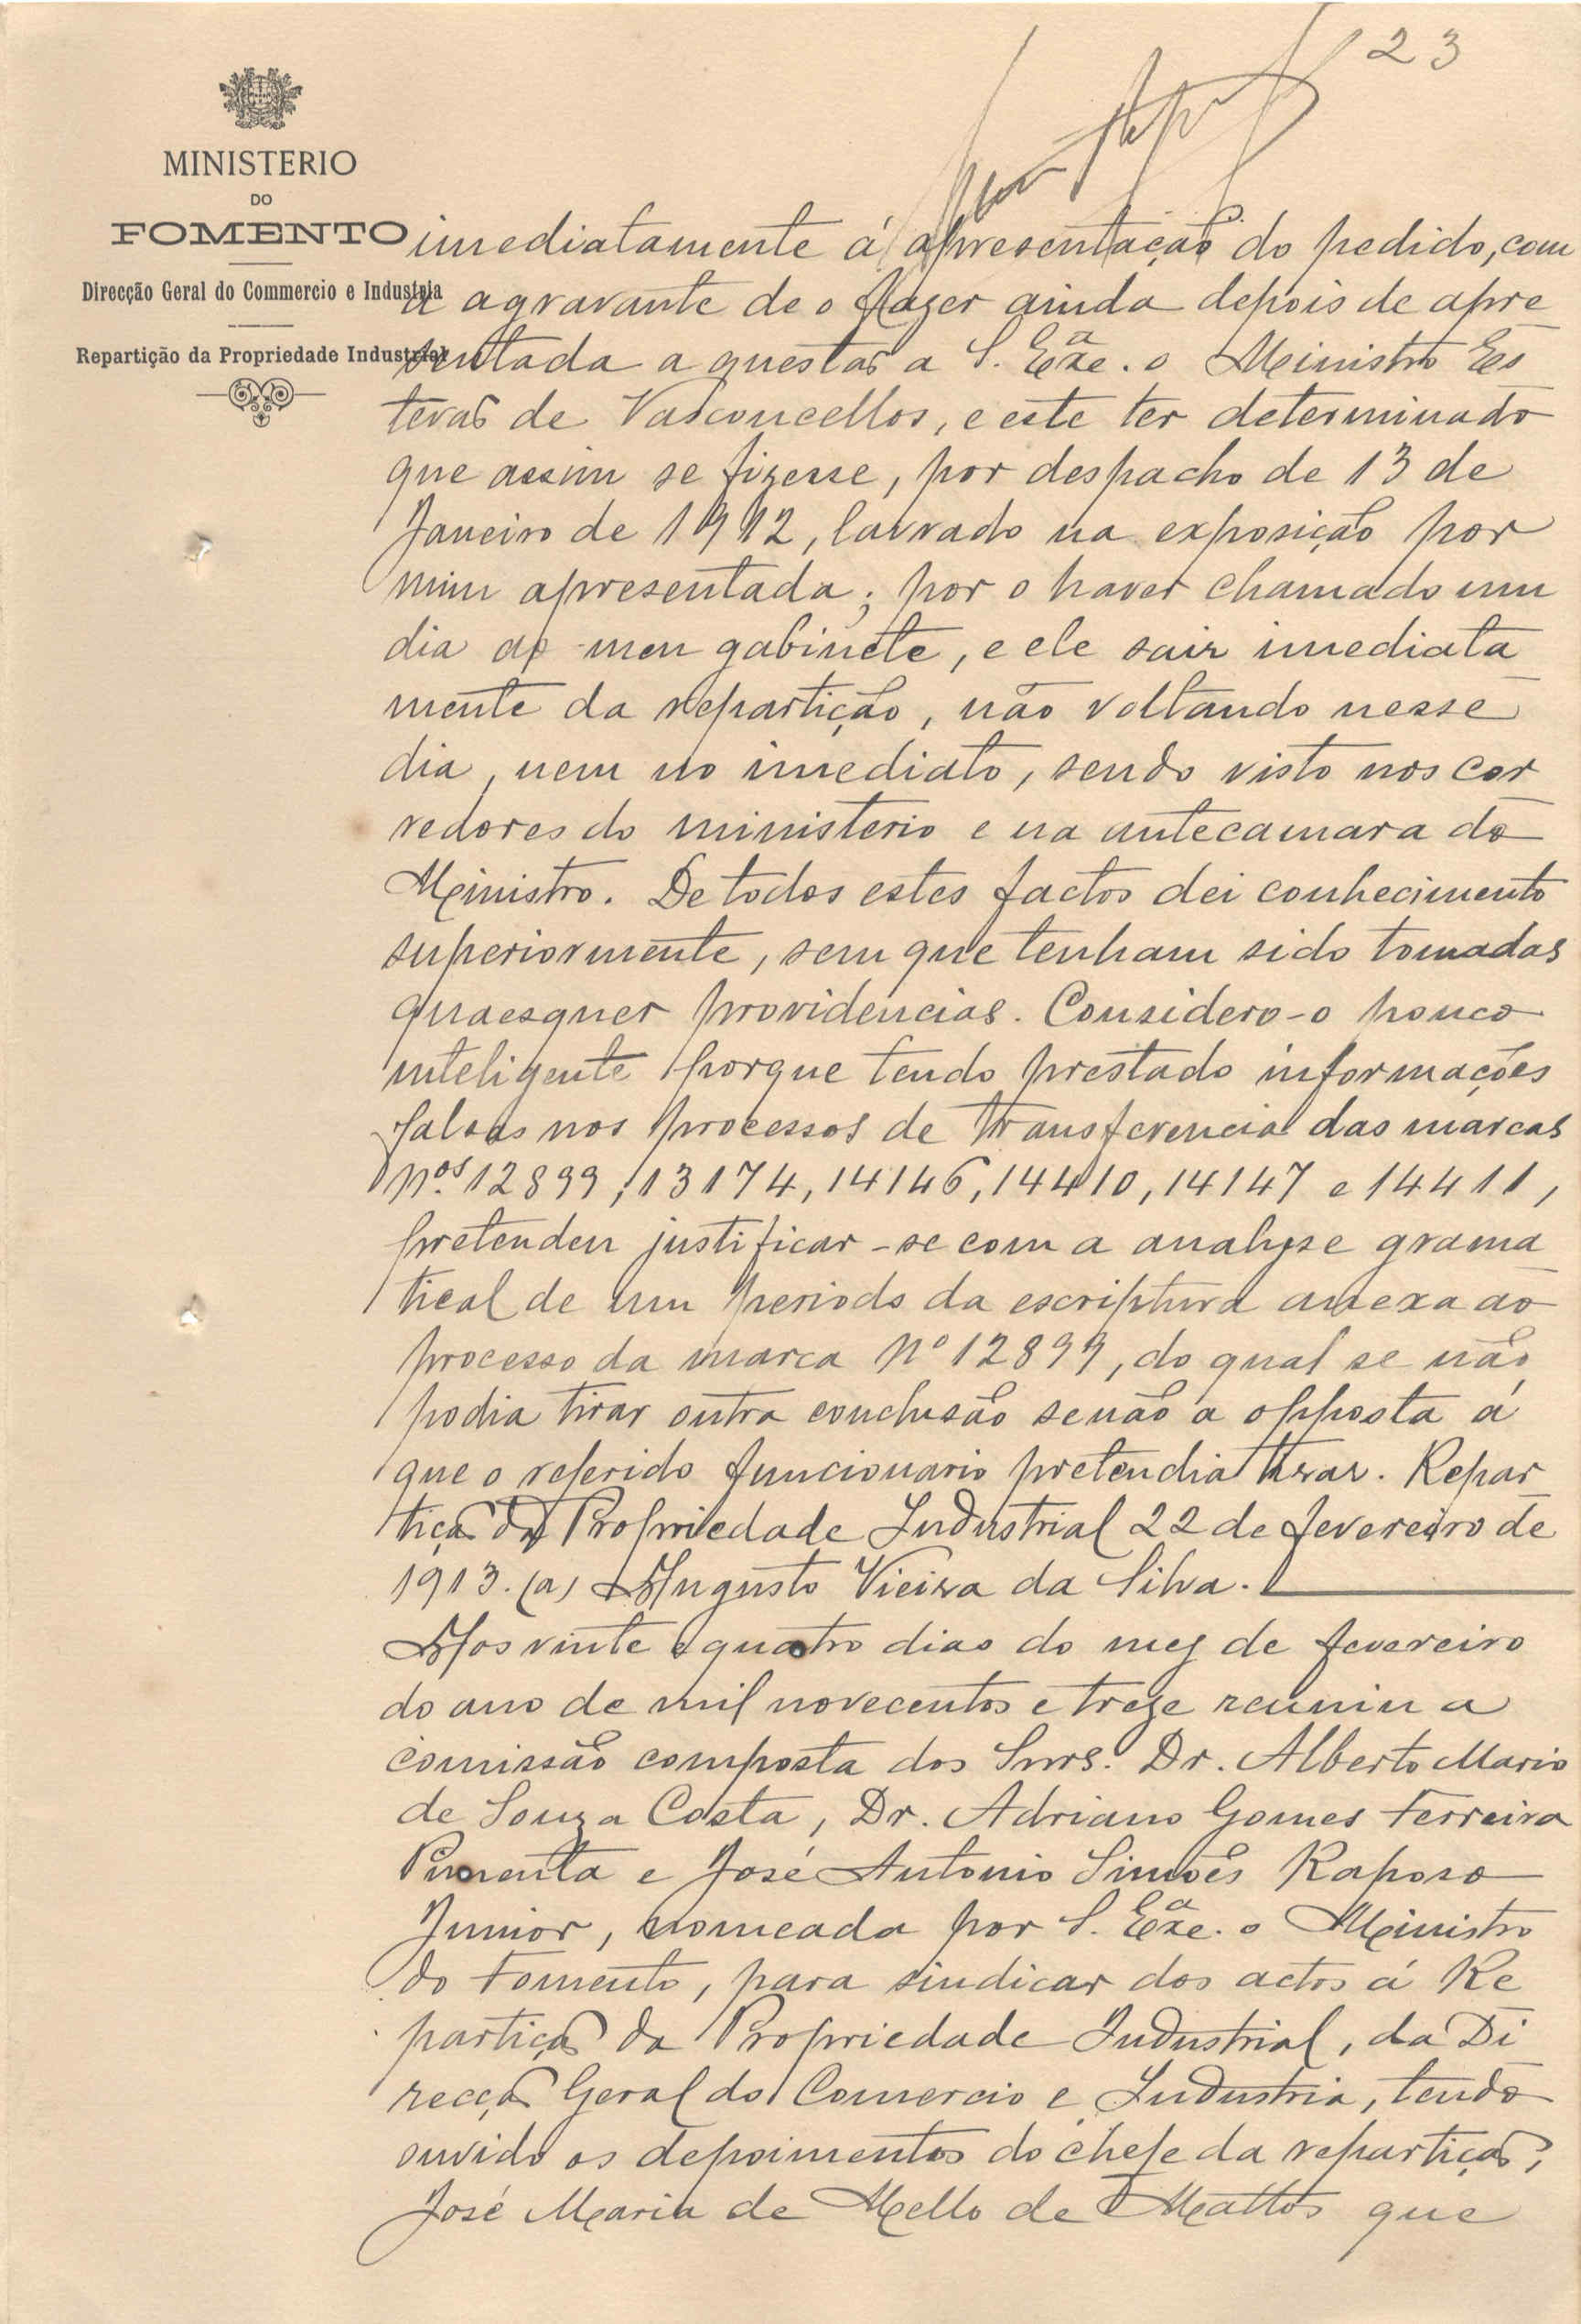 23
MINISTERIO
DO
FOMENTO
Direcção Geral do Commercio e Industria
Repartição da Propriedade Industrial
imediatamente á apresentação do pedido, com
a agravante de o fazer ainda depois de apre
sentada a questão a S. Exª. o Ministro Es
tevão de Vasconcellos, e este ter determinado
que assim se fizesse, por despacho de 13 de
Janeiro de 1912, lavrado na exposição por
mim apresentada; por o haver chamado um
dia ao meu gabinete, e ele sair imediata
mente da repartição, não voltando nesse
dia, nem no imediato, sendo visto nos cor
redores do ministerio e na antecamara do
Ministro. De todos estes factos dei conhecimento
superiormente, sem que tenham sido tomadas
quaesquer providencias. Considero-o pouco
inteligente porque tendo prestado informações
falsas nos processos de transferencia das marcas
Nos. 12899, 13174, 14146, 14410, 14147 e 14411,
pretendeu justificar-se com a analyse grama
tical de um periodo da escriptura anexa ao
processo da marca Nº 12899, do qual se não
podia tirar outra conclusão senão a opposta á
que o referido funcionario pretendia tirar. Repar
tição da Propriedade Industrial 22 de fevereiro de
1913. (a) Augusto Vieira da Silva.
Aos vinte e quatro dias do mez de fevereiro
do ano de mil novecentos e treze reuniu a
comissão composta dos Snrs. Dr. Alberto Mario
de Souza Costa, Dr. Adriano Gomes Ferreira
Pimenta e José Antonio Simões Raposo
Junior, nomeada por S. Exª. o Ministro
do Fomento, para sindicar dos actos á Re
partição da Propriedade Industrial, da Di
recção Geral do Comercio e Industria, tendo
ouvido os depoimentos do chefe da repartição,
José Maria de Mello de Mattos que